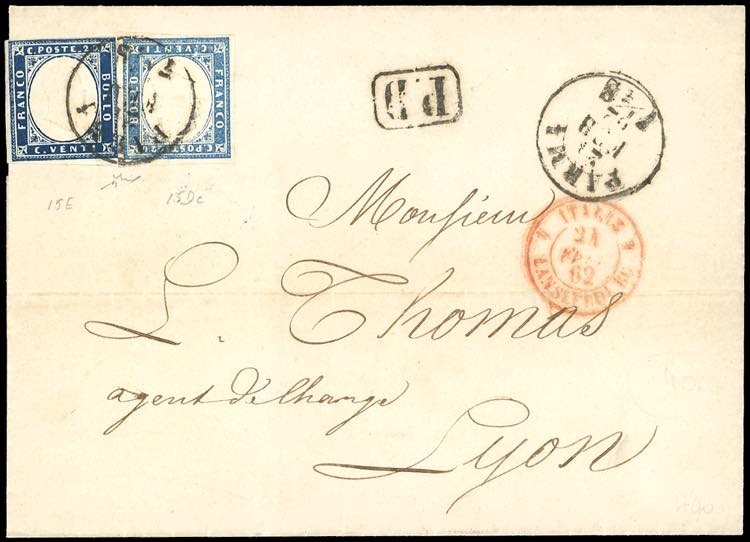 C. POSTE. 20
FRANCO
BOLLO
C. VENTI
C. VENTI
BOLLO
FRANCO
C. POSTE. 20
P.D
PARMA
ITALIE
21
62
LANSLEBOURG
15E
15Dc
Monsieur
L. Thomas
agent de Change
Lyon